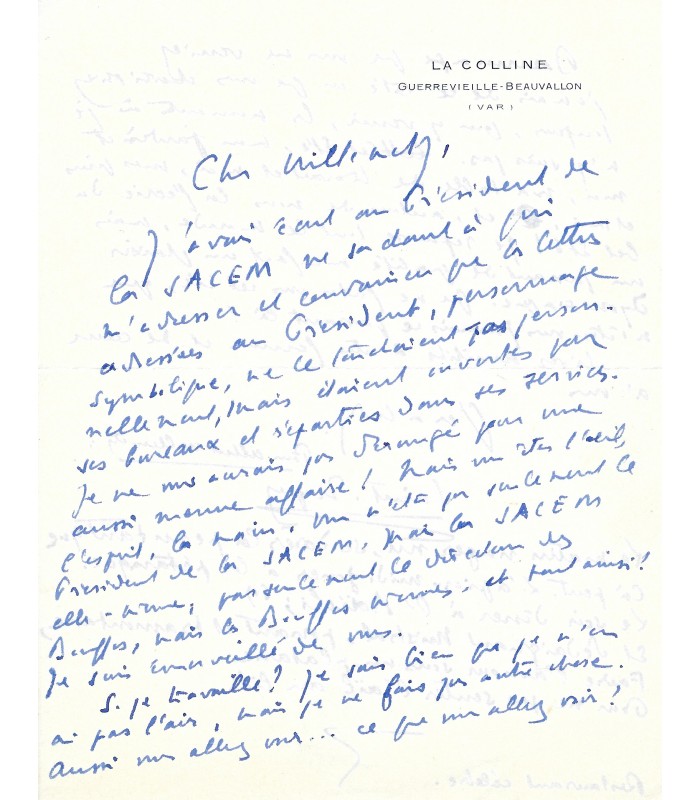 LA COLLINE
GUERREVIEILLE-BEAUVALLON
(VAR)
Cher Willemetz,
J'avais écrit au Président de
la SACEM ne sachant à qui
m'adresser et convaincu que les lettres
adressées au Président, personnage
symbolique, ne le touchaient pas person-
nellement, mais étaient ouvertes par
ses bureaux et réparties dans ses services.
Je ne vous aurais pas dérangé pour une
aussi menue affaire! Mais vous êtes l'œil,
l'esprit, la main, vous n'êtes pas seulement le
Président de la SACEM, mais la SACEM
elle-même; pas seulement le directeur des
Bouffes, mais les Bouffes mêmes; et tout ainsi!
Je suis émerveillé de vous.
Si je travaille? Je sais bien que je n'en
ai pas l'air, mais je ne fais pas autre chose.
Aussi vous allez voir... ce que vous allez voir!